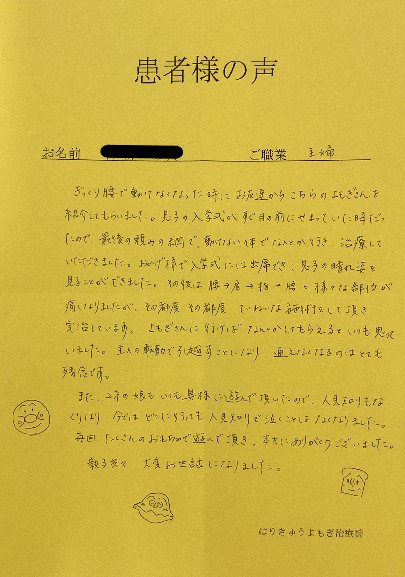 患者様の声
お名前 ご職業 主婦
ぎっくり腰で動けなくなった時に、お友達からこちらのよもぎさんを
紹介してもらいました。息子の入学式がすぐ目の前にせまっていた時だっ
たので、最後の頼みの綱で、動けない体でなんとか行き、治療して
いただきました。おかげ様で入学式には出席でき、息子の晴れ姿を
見ることができました。その後は腰→肩→指→腰と様々な部位が
痛くなりましたが、その都度その都度ていねいな施術をして頂き
完治しています。よもぎさんに行けばなんとかしてもらえるといつも思って
いました。主人の転勤で引越すことになり 通えなくなるのはとても
残念です。
また、2才の娘もいつも奥様に遊んで頂いたので、人見知りもな
くなり 今では どこに行っても人見知りで泣くことはなくなりました。
毎回 たくさんのおもちゃで遊んで頂き、本当にありがとうございました。
親子共々 大変お世話になりました。
はりきゅうよもぎ治療院